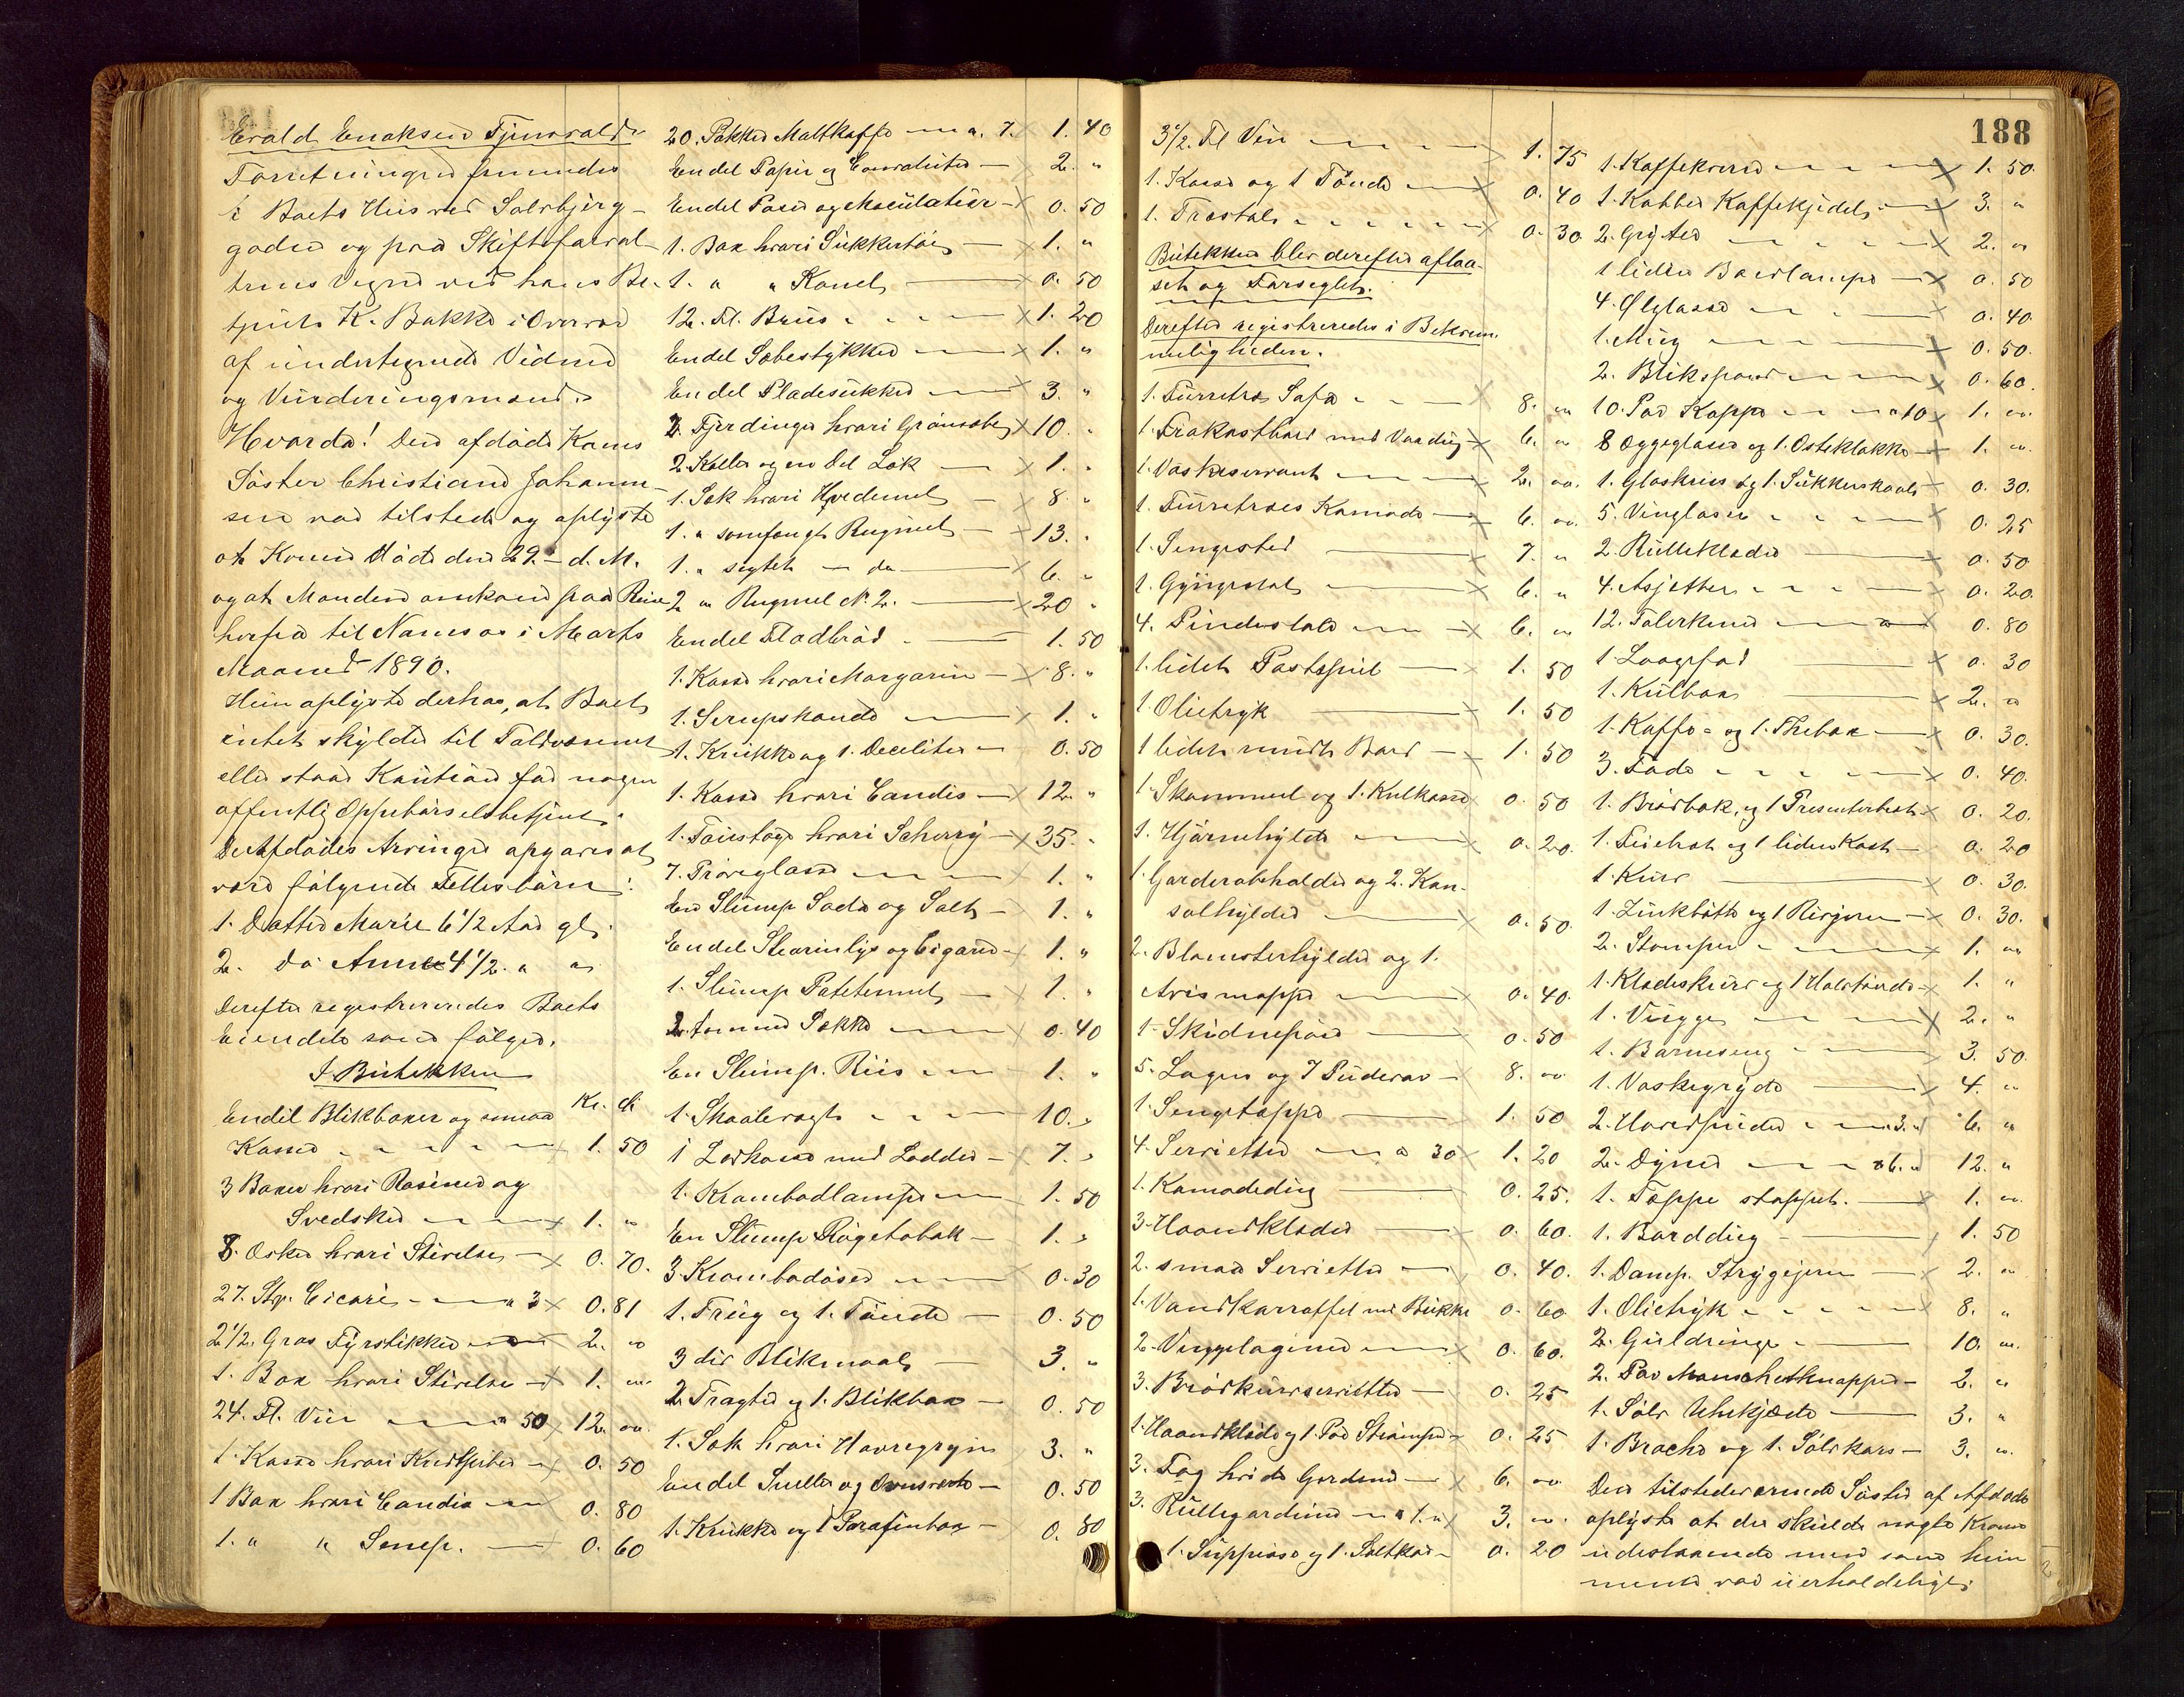 Evald Enoksen Tjensvold
Forretningen fremmedes
i Boets Hus ved Solvbjerg-
gaden og paa Skifteforval-
terens Vegne ved hans Be-
tjent K. Bakke i Overvær
af undertegnede Vidner
og Vurderingsmænd.
Hvorda! Den afdøde Kones
Søster Christiane Johanne-
sen var tilstede og oplyste
at Konen døde den 29 d. M.
og at Manden omkom paa Reise
herfra til Namsos i Marts
Maaned 1890.
Hun oplyste derhos, at Boet
intet skylder til Toldvæsenet
eller staar Kaution for nogen
offentlig Oppebørselsbetjent.
De Afdødes Arvinger opgaves at
være følgende Fellesbørn:
1. Datter Marie 6 1/2 Aar gl.
2. do Anne 4 1/2 " "
Derefter registreredes Boets
Eiendele som følger.
I Butikken
Kr. Ø
Endel Blikboxer og smaa
Kasser x 1. 50
3 Boxer hvori Rosiner og
Svedsker x 1. "
8. Æsker hvori Stivelse x 0. 70.
27. Stk. Cicori a 3 x 0. 81
2 1/2. Gros Fyrstikker 2. "
1. Box hvori Stivelse x 1. "
24. Fl. Vin a 50 x 12. "
1. Kasse hvori Kridtpiber x 0. 50
1 Box hvori Candis 0. 80
1. " " Senep. 0. 60
20. Pakker Maltkaffe a. 7. x 1. 40
Endel Papir og Convoluter x 2. "
Endel Poser og Maculatur x 0. 50
1. Box hvori Sukkertøi x 1. "
1. " " Kanel x 0. 50
12. Fl. Brus x 1. 20
Endel Sæbestykker x 1. "
Endel Pladesukker x 3. "
2. Fjerdinger hvori Grønsæbe x 10. "
2. Koller og en Del Løk x 1. "
1. Sæk hvori Hvedemel x 8. "
1. " somfengt Rugmel x 13. "
1. " sigtet do x 6. "
2 " Rugmel N. 2. x 20 "
Endel Fladbrød 1. 50
1. Kasse hvori Margarin x 8. "
1. Serupskande x 1. "
1. Krukke og 1. Deciliter 0. 50
1. Kasse hvori Candis x 12. "
1. Foustage hvori Scherry x 35. "
7. Prøveglasse x 1. "
En Slump Soda og Salt 1. "
Endel Stearinlys og Cigarer x 1. "
1. Slump Potetemel x 1. "
2. tomme Sække x 0. 40
En Slump. Riis 1. "
1. Skaalevegt 10. "
1 Lodkasse med Lodder 7. "
1. Krambodlampe 1. 50
En Slump Røgetobak 1. "
3 Krambodøser 0. 30
1. Trug og 1. Tønde 0. 50
3 div Blikmaal 3. "
2. Tragter og 1. Blikbox 0. 50
1. Sæk hvori Havregryn 3. "
Endel Sneller og 0. 50
1. Krukke og 1 Parafinbox 0. 80
188
3 1/2. Fl Vin x 1. 75
1. Kasse og 1 Tønde x 0. 40
1. Træstol x 0. 30
Butikken blev derefter aflaa-
set og Forseglet.
Derefter registreredes i Bekvem-
meligheden.
1. Furretræs Sofa x 8. "
1. Frokostbord med Voxdug x 6. "
1. Vaskeservant 2. "
1. Furretræes Komode x 6. "
1. Sengested 7. "
1. Gyngestol x 6. "
4. Pindestole x 6. "
1. lidet Postspeil x 1. 50
1 Olietryk x 1. 50
1 lidet rundt Bord 1. 50
1. Skammel og 1. Kulkasse 0. 50
1. Hjørnehylde x 0. 20.
1. Garderobeholder og 2. Kon-
solhylder x 0. 50
2. Blomsterhylder og 1.
Avismappe x 0. 40.
1. Skidnepose 0. 50
5. Lagen og 7 Pudevar 8. "
1. Sengetæppe 1. 50
4. Servietter a 30 x 1. 20
1. Komodedug 0. 25.
3. Haandklæder x 0. 60.
2. smaa Servietter 0. 40.
1. Vandkarraffel med Bakke 0. 60
2. Vuggelagener x 0. 60.
3. Brødkurvservietter 0. 25
1. Haandklæde og 1. Par Strømper 0. 25
3. Fag hvide Gardiner x 6. "
3. Rullegardiner a 1. " x 3. "
1. Suppeøse og 1. Saltkar 0. 20
1. Kaffekværn x 1. 50.
1. Kobber Kaffekjedel x 3. "
2. Gryter x 2. "
1 liden Bordlampe x 0. 50
4. Ølglasse 0. 40.
1. Mug x 0. 50.
2. Blikspand x 0. 60.
10. Par Kopper a 10 x 1. "
8 Æggeglasse og 1. Osteklokke x 1. "
1. Glaskrus og 1. Sukkerskaal 0. 30.
5. Vinglasse x 0. 25
2. Rulleklæder 0. 50
4. Asjetter x 0. 20.
12. Talerkener 0. 80
1. Laagefad x 0. 30
1. Kulbox x 2. "
1. Kaffe- og 1. Thebox x 0. 30.
3. Fade x 0. 40.
1. Brødbak, og 1 Presenterbret x 0. 20.
1. Feiebret og 1 liden Kost 0. 20
1. Kurv x 0. 30.
1. Zinkbøtte og 1 Rivjern x 0. 30.
2. Stamper x 1. "
1. Klædeskurv og 1 Halvtønde x 1. "
1. Vugge x 2. "
1. Barneseng 3. 50.
1. Vaskegryde x 4. "
2. Hovedpuder a 3. " 6. "
2. Dyner a 6. " 12. "
1. Tæppe stoppet. x 1. "
1. Borddug 1. 50
1. Damp. Strygejern x 2. "
1. Olietryk x 8. "
2. Guldringe 10. "
2. Par Manschetknapper 2. "
1. Sølv Uhrkjæde 3. "
1. Broche og 1. Sølvkors 3. "
Den tilstedeværende Søster af Afdøde
oplyste at der skulde nogle Kroner
udestaaende men som hun
mente var uerholdelige.